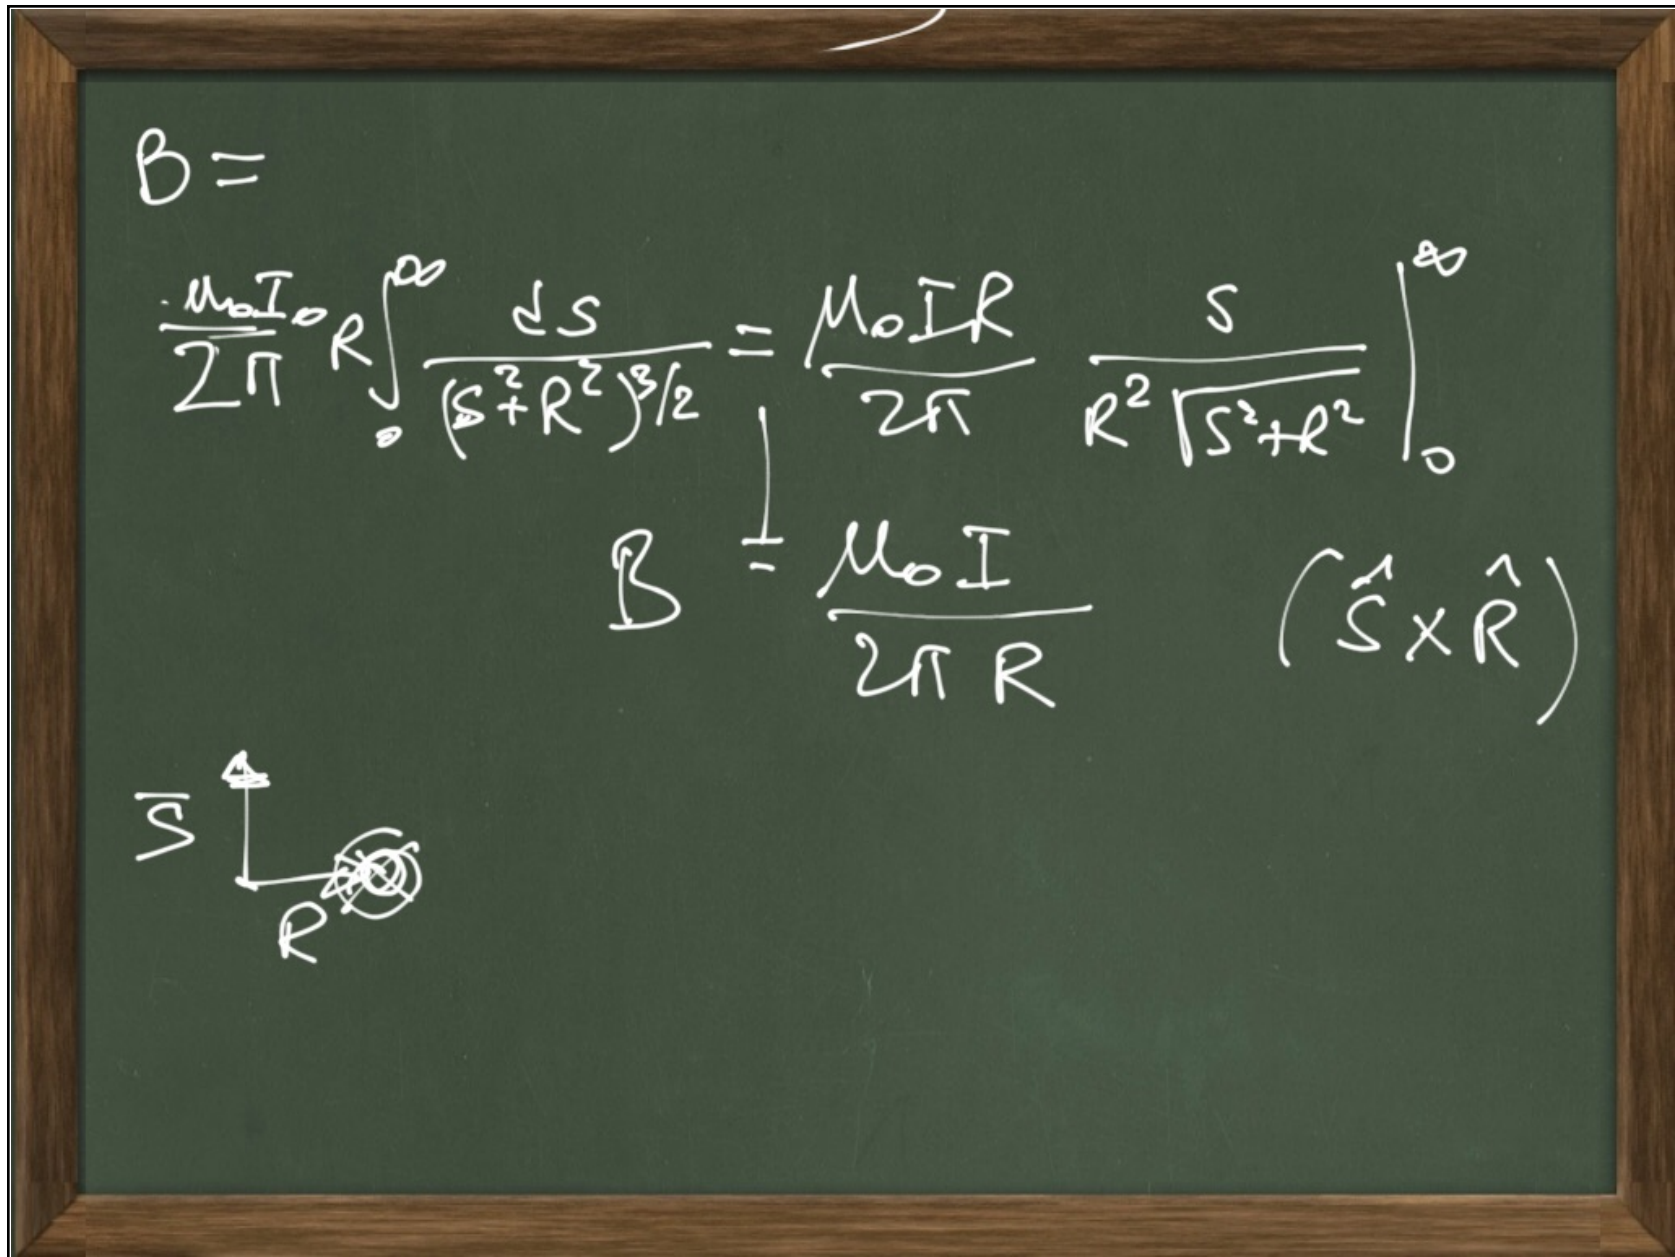 B =
μ₀I₀/2π R ∫₀^∞ ds/(s²+R²)^3/2 = μ₀IR/2π s/(R²√(s²+R²)) |₀^∞
B = μ₀I/2πR (ŝ × R̂)
S̄
R